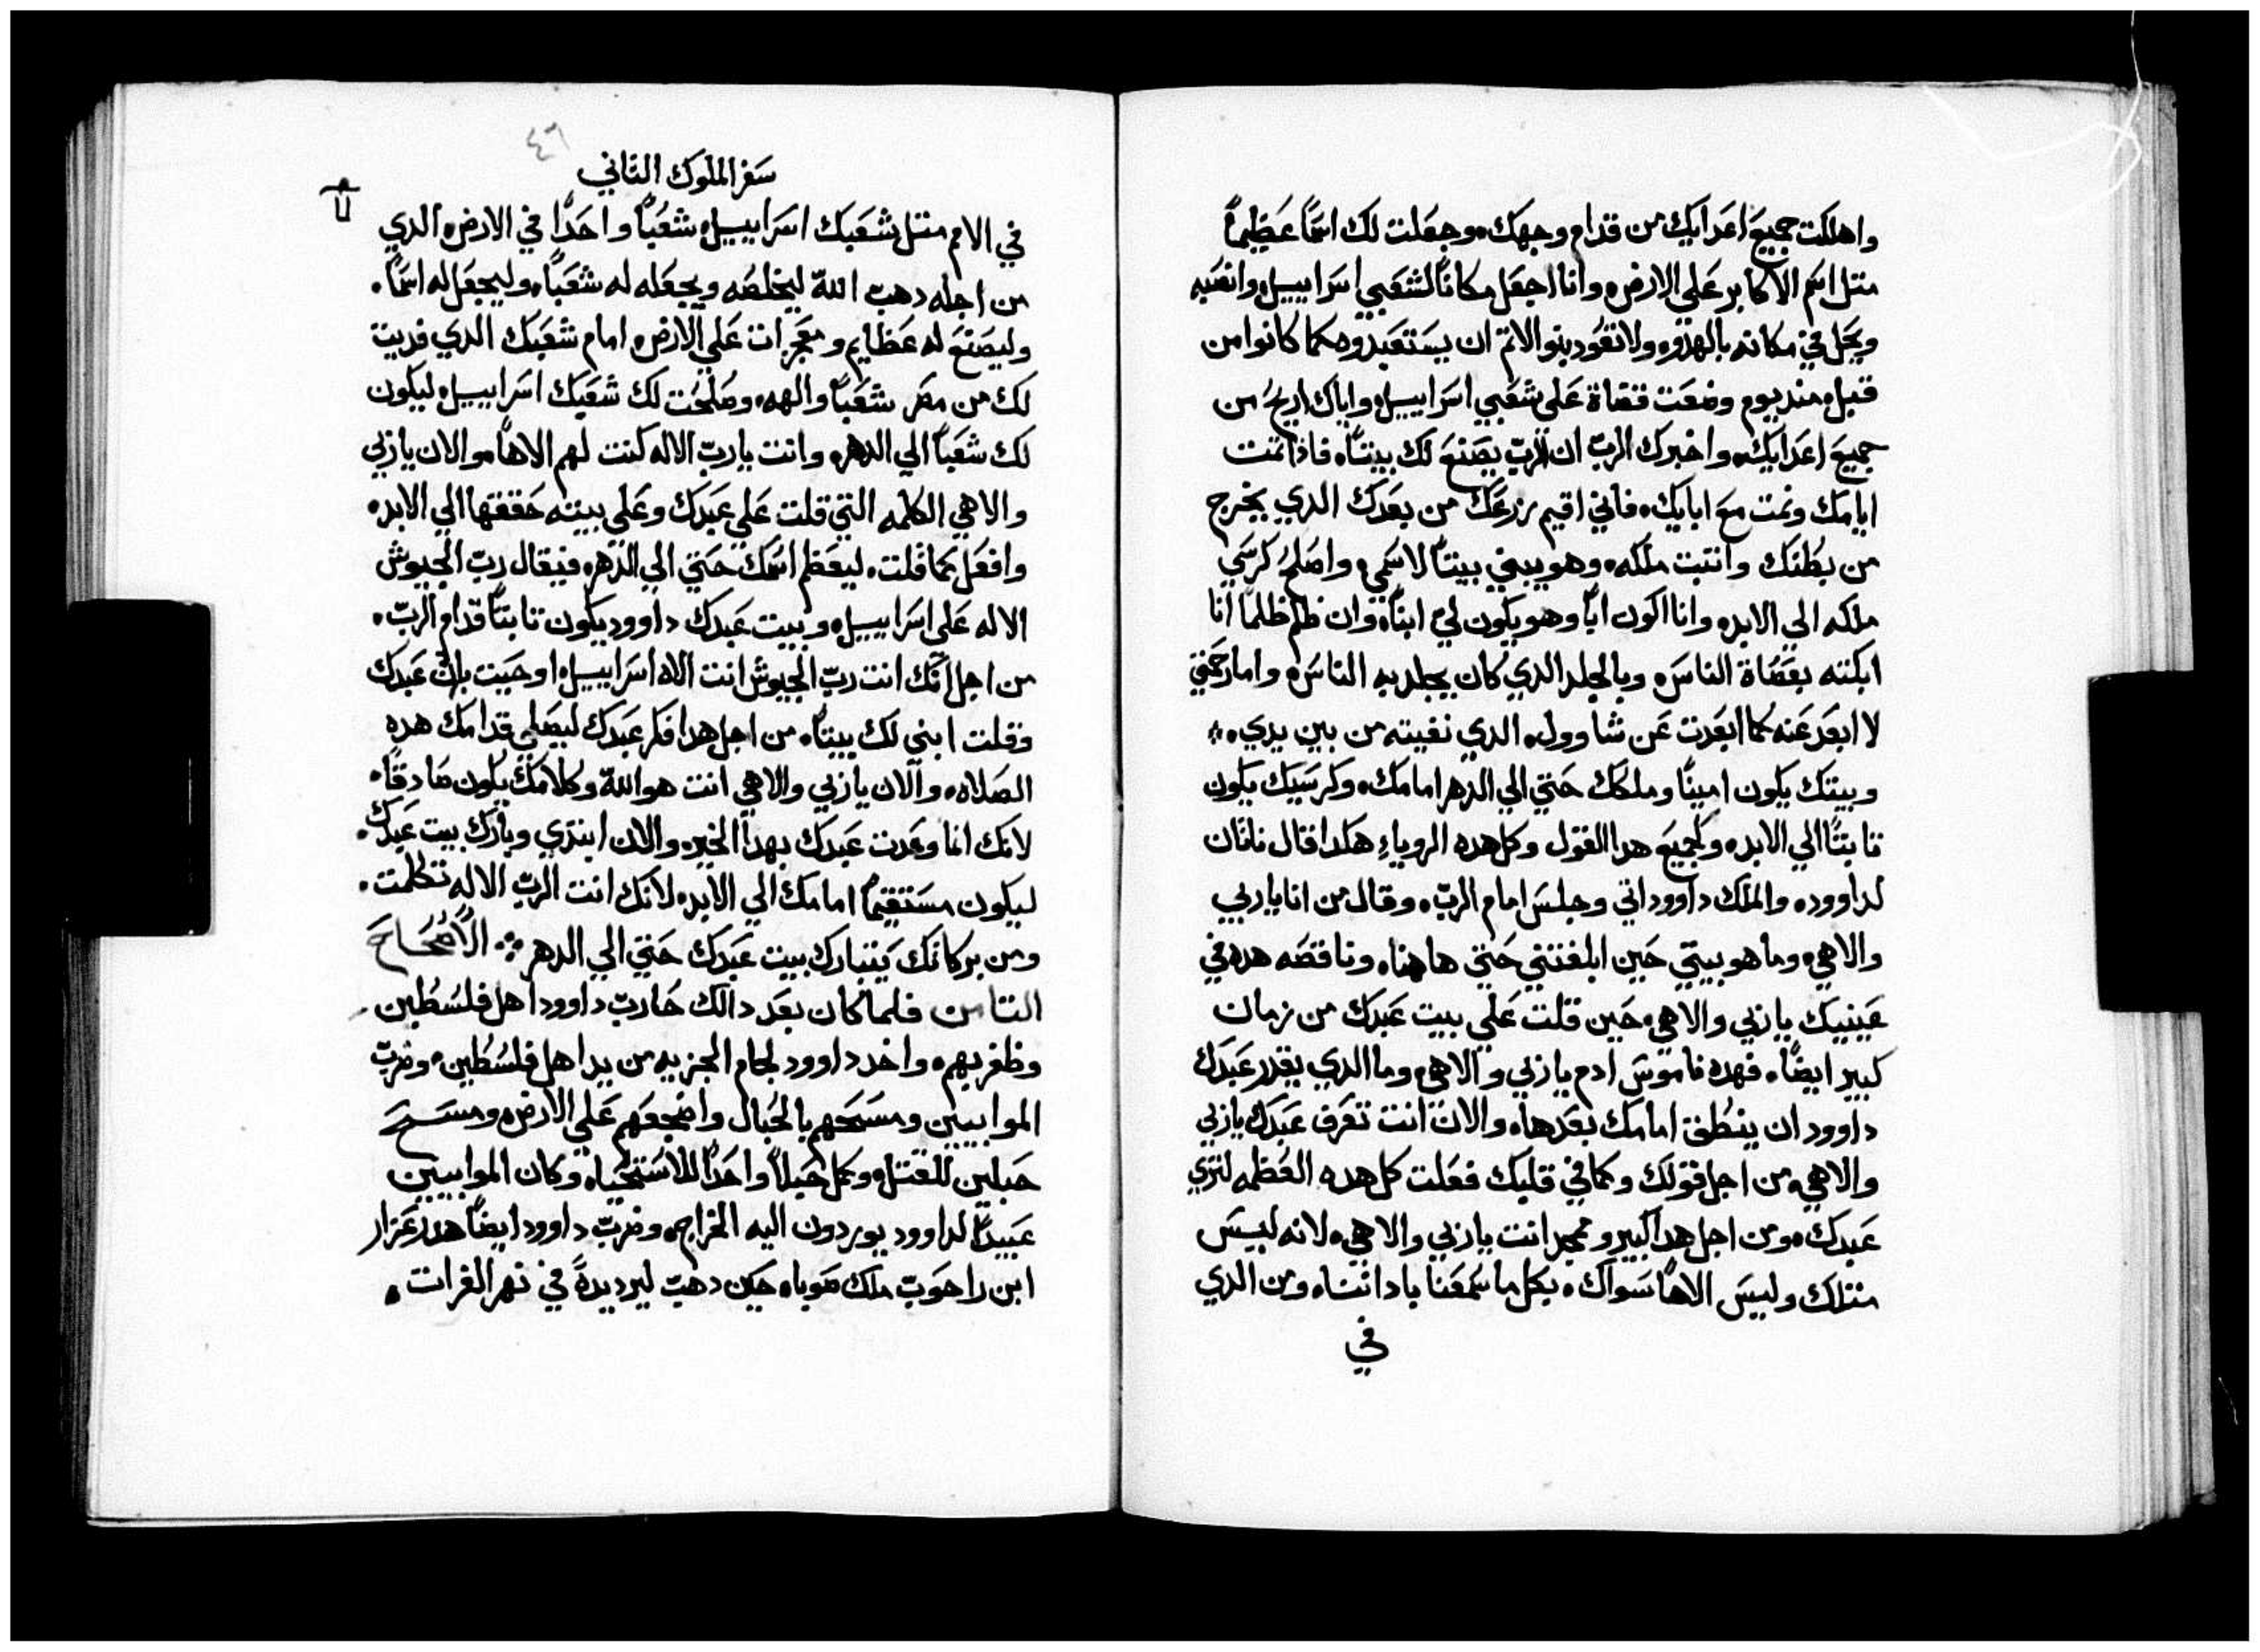 واهلكت جميع اعدايك من قدام وجهك، وجعلت لك اسمًا عظيمًا
متل اسم الاكابر علي الارض، وانا اجعل مكانًا لشعبي اسراييل، وانصبه
ويحل في مكانه بالهدو، ولا تعود بنوا الاتم ان يستعبدوه كما كانوا من
قبل، منديوم وضعت قضاة علي شعبي اسراييل، واياك اريح من
جميع اعدايك، واخبرك الرب ان الرب يصنع لك بيتًا، فاذا تمت
ايامك ونمت مع ابايك، فاني اقيم زرعك من بعدك الدي يخرج
من بطنك وانتبت ملكه، وهو يبني بيتًا لاسمي، واصلح كرسي
ملكه الي الابد، وانا اكون ابًا وهو يكون لي ابنًا، وان ظلم ظلمًا انا
ابكته بعصاة الناس، وبالجلد الدي كان يجلد به الناس، واما رحمتي
لا ابعد عنه كما ابعدت عن شاوول، الدي نفيته من بين يدي،
وبيتك يكون امينًا وملكك حتي الي الدهر امامك، وكرسيك يكون
تابتًا الي الابد، وكجميع هدا القول وكل هده الروياء هكدا قال ناتان
لداوود، والملك داوود اتي وجلس امام الرب، وقال من انا ياربي
والاهي، وما هو بيتي حين ابلغتني حتي هاهنا، وناقصه هده في
عينيك ياربي والاهي، حين قلت علي بيت عبدك من زمان
كبير ايضًا، فهده ناموس ادم ياربي والاهي، وما الدي يقدر عبدك
داوود ان ينطق امامك بعدها، والان انت تعرف عبدك ياربي
والاهي، من اجل قولك وكما في قلبك فعلت كل هده العظمه لتري
عبدك، ومن اجل هدا كبير وممجد انت ياربي والاهي، لانه ليس
متلك وليس الاهًا سواك، بكل ما سمعنا باداننا، ومن الدي
في
٤٦
سفر الملوك التاني
في الامم متل شعبك اسراييل، شعبًا واحدًا في الارض، الدي
من اجله دهب الله ليخلصه ويجعله له شعبًا، وليجعل له اسمًا.
وليصنع له عظايم ومعجزات علي الارض، امام شعبك الدي فديت
لك من مصر شعبًا والهه، وصلحت لك شعبك اسراييل، ليكون
لك شعبًا الي الدهر، وانت يارب الاله كنت لهم الاهًا، والان ياربي
والاهي الكلمه التي قلت علي عبدك وعلي بيته حققها الي الابد،
وافعل كما قلت، ليعظم اسمك حتي الي الدهر، فيقال رب الجيوش
الاله علي اسراييل، وبيت عبدك داوود يكون تابتًا قدام الرب.
من اجل انك انت رب الجيوش انت الاه اسراييل، اوحيت باذن عبدك
وقلت ابني لك بيتًا، من اجل هدا فكر عبدك ليصلي قدامك هده
الصلاه، والان ياربي والاهي انت هو الله وكلامك يكون صادقًا،
لانك انما وعدت عبدك بهدا الخير، والان ابتدي وبارك بيت عبدك.
ليكون مستقيمًا امامك الي الابد، لانك انت الرب الاله تكلمت.
ومن بركاتك يتبارك بيت عبدك حتي الي الدهر ۞ الاصحاح
التامن فلما كان بعد دالك حارب داوود اهل فلسطين
وظفر بهم، واخد داوود لجام الجزيه من يد اهل فلسطين، وضرب
الموابيين ومسحهم بالحبال واضجعهم علي الارض، ومسح
حبلين للقتل، وكل حبلًا واحدًا للاستحيا، وكان الموابيين
عبيدًا لداوود يوردون اليه الخراج، وضرب داوود ايضًا هدرعزار
ابن راحوب ملك صوبا، حين دهب ليرد يدهً في نهر الفرات.